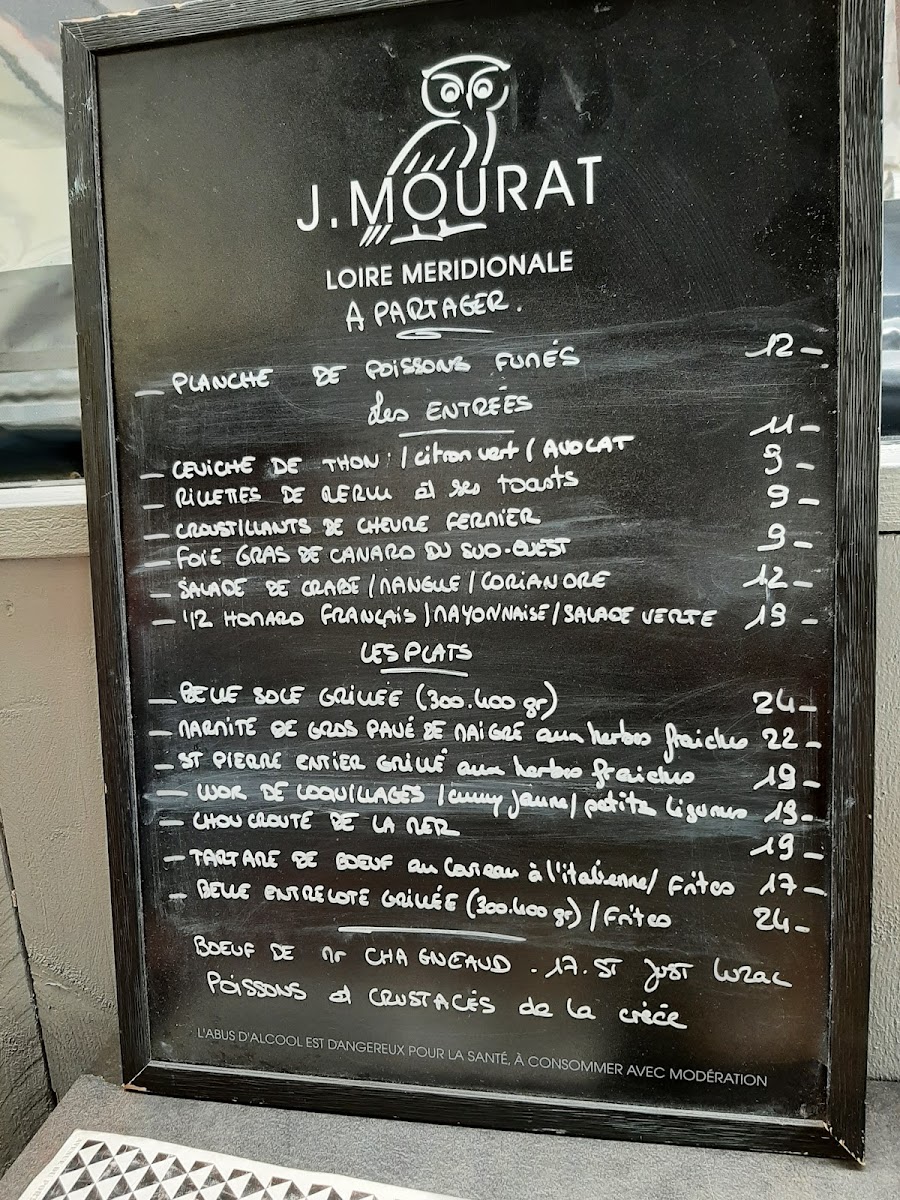 J.MOURAT
LOIRE MERIDIONALE
A PARTAGER.
— PLANCHE DE POISSONS FUMÉS 12 —
des ENTRÉES
— CEVICHE DE THON / citron vert / AVOCAT 11 —
— RILLETTES DE MERLU et ses toasts 9 —
— CROUSTILLANTS DE CHEVRE FERMIER 9 —
— FOIE GRAS DE CANARD DU SUD-OUEST 9 —
— SALADE DE CRABE / MANGUE / CORIANDRE 12 —
— 1/2 HOMARD FRANÇAIS / MAYONNAISE / SALADE VERTE 19 —
LES PLATS
— BELLE SOLE GRILLÉE (300.400 gr) 24 —
— MARMITE DE GROS PAVÉ DE MAIGRE aux herbes fraiches 22 —
— ST PIERRE ENTIER GRILLÉ aux herbes fraiches 19 —
— WOK DE COQUILLAGES / curry jaune / petits légumes 19 —
— CHOUCROUTE DE LA MER 19 —
— TARTARE DE BOEUF au couteau à l'italienne / Frites 17 —
— BELLE ENTRECOTE GRILLÉE (300.400 gr) / Frites 24 —
BOEUF DE Mr CHAGNEAUD . 17. ST JUST LUZAC
POISSONS et CRUSTACÉS de la criée
L'ABUS D'ALCOOL EST DANGEREUX POUR LA SANTÉ, À CONSOMMER AVEC MODÉRATION